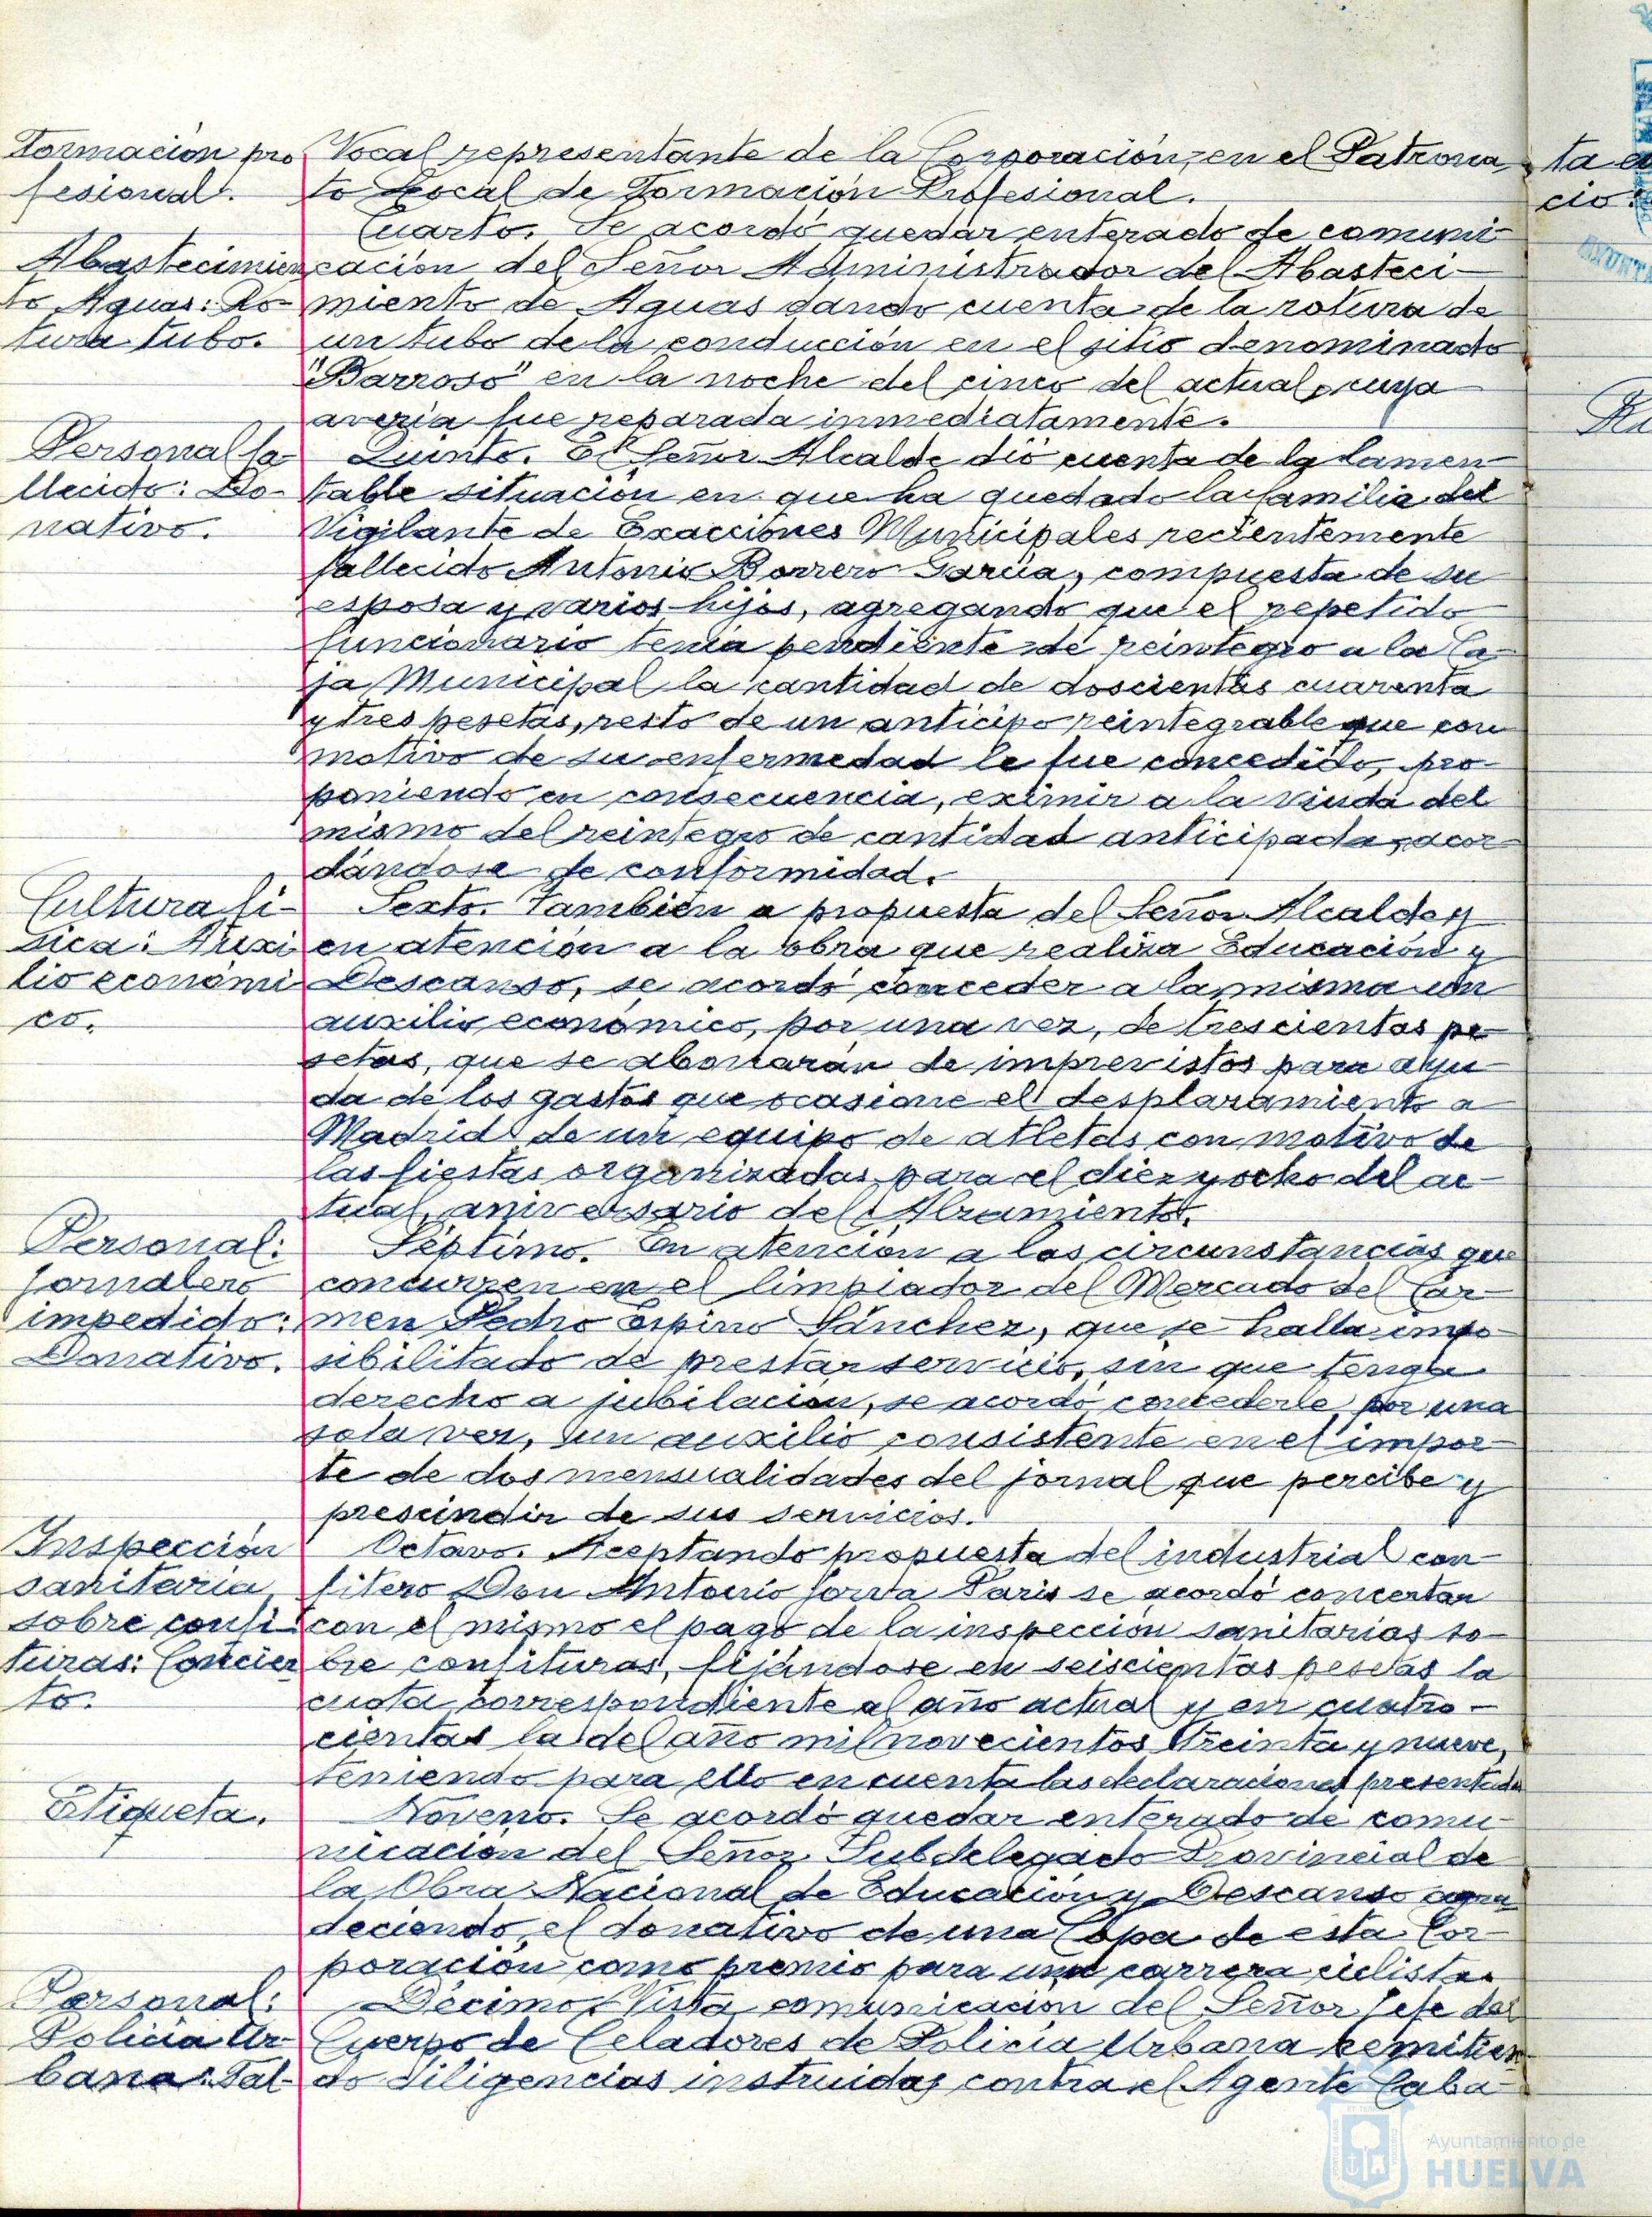 Formación pro
fesional.
Vocal representante de la Corporación, en el Patrona
to Local de Formación Profesional.
Cuarto. Se acordó quedar enterado de comuni-
Abastecimien
to Aguas: Ro-
tura tubo.
cación del Señor Administrador del Abasteci-
miento de Aguas dando cuenta de la rotura de
un tubo de la conducción en el sitio denominado
"Barroso" en la noche del cinco del actual, cuya
avería fue reparada inmediatamente.
Personal fa-
llecido: Do-
nativo.
Quinto. El Señor Alcalde dió cuenta de la lamen-
table situación en que ha quedado la familia del
Vigilante de Exacciones Municipales recientemente
fallecido Antonio Borrero García, compuesta de su
esposa y varios hijos, agregando que el repetido
funcionario tenía pendiente de reintegro a la Ca-
ja Municipal la cantidad de doscientas cuarenta
y tres pesetas, resto de un anticipo reintegrable que con
motivo de su enfermedad le fue concedido, pro-
poniendo en consecuencia, eximir a la viuda del
mismo del reintegro de cantidad anticipada, acor-
dándose de conformidad.
Cultura fí-
sica: Auxi
lio económi
co.
Sexto. También a propuesta del Señor Alcalde y
en atención a la obra que realiza Educación y
Descanso, se acordó conceder a la misma un
auxilio económico, por una vez, de trescientas pe-
setas, que se abonarán de imprevistos para ayu-
da de los gastos que ocasione el desplazamiento a
Madrid de un equipo de atletas con motivo de
las fiestas organizadas para el diez y ocho del ac-
tual, aniversario del Alzamiento.
Personal:
Jornalero
impedido:
Donativo.
Séptimo. En atención a las circunstancias que
concurren en el limpiador del Mercado del Car-
men Pedro Espino Sánchez, que se halla impo-
sibilitado de prestar servicio, sin que tenga
derecho a jubilación, se acordó concederle por una
sola vez, un auxilio consistente en el impor-
te de dos mensualidades del jornal que percibe y
prescindir de sus servicios.
Inspección
sanitaria
sobre confi
turas: Concier
to.
Octavo. Aceptando propuesta del industrial con-
fitero Don Antonio Jorva Paris se acordó concertar
con el mismo el pago de la inspección sanitarias so-
bre confituras, fijándose en seiscientas pesetas la
cuota correspondiente al año actual y en cuatro-
cientas la del año mil novecientos treinta y nueve,
teniendo para ello en cuenta las declaraciones presentadas
Etiqueta.
Noveno. Se acordó quedar enterado de comu-
nicación del Señor Subdelegado Provincial de
la Obra Nacional de Educación y Descanso agra
deciendo el donativo de una Copa de esta Cor-
poración como premio para una carrera ciclista.
Personal:
Policía Ur-
bana: Fal-
Décimo. Vista comunicación del Señor Jefe del
Cuerpo de Celadores de Policía Urbana remitien-
do diligencias instruidas contra el Agente Caba-
ta
cio:
Ayuntamiento de
HUELVA